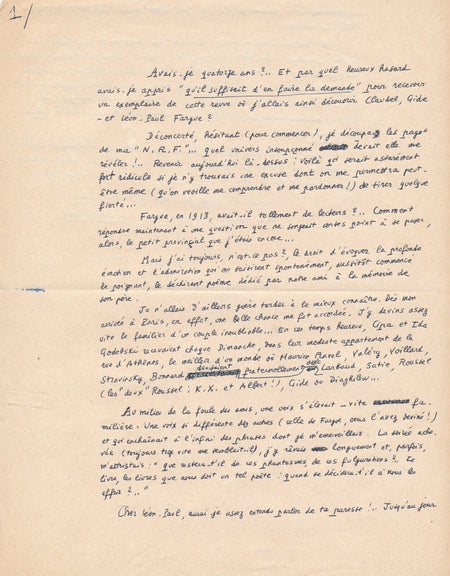 1/
Avais-je quatorze ans ?.. Et par quel heureux hasard
avais-je appris "qu'il suffisait d'en faire la demande" pour recevoir
un exemplaire de cette revue où j'allais ainsi découvrir Claudel, Gide
- et Léon-Paul Fargue ?
Déconcerté, hésitant (pour commencer), je découpais les pages
de ma "N.R.F."... quel univers insoupçonné devait elle me
révéler !.. Revenir aujourd'hui là-dessus : Voilà qui serait assurément
fort ridicule si je n'y trouvais une excuse dont on me permettra peut-
être même (qu'on veuille me comprendre et me pardonner !) de tirer quelque
fierté...
Fargue, en 1913, avait-il tellement de lecteurs ?.. Comment
répondre maintenant à une question que ne songeait certes point à se poser,
alors, le petit provincial que j'étais encore...
Mais j'ai toujours, n'est-ce pas ?, le droit d'évoquer la profonde
émotion et l'admiration qui me saisirent spontanément, aussitôt commencé
le poignant, le déchirant poème dédié par notre ami à la mémoire de
son père.
Je n'allais d'ailleurs guère tarder à le mieux connaître. Dès mon
arrivée à Paris, en effet, une belle chance me fut accordée. J'y devins assez
vite le familier d'un couple inoubliable... En ces temps heureux, Cipa et Ida
Godebski recevaient chaque Dimanche, dans leur modeste appartement de la
rue d'Athènes, le meilleur d'un monde où Maurice Ravel, Valéry, Vollard,
Stravinsky, Bonnard fraternellement avec Larbaud, Satie, Roussel
(les "deux" Roussel : K.X. et Albert !), Gide ou Diaghilew...
Au milieu de la foule des amis, une voix s'élevait - vite fa-
milière. Une voix si différente des autres (celle de Fargue, vous l'avez deviné !)
et qui enchaînait à l'infini des phrases dont je m'émerveillais. La soirée ache-
vée (toujours trop vite me semblait-il), j'y rêvais longuement et, parfois,
m'attristais : " que restera-t-il de ces phantasmes, de ces fulgurations ?. Le
livre, les livres que nous doit un tel poète : quand se décidera-t-il à nous les
offrir ?.."
Cher Léon-Paul, aurai-je assez entendu parler de ta paresse !.. Jusqu'au jour